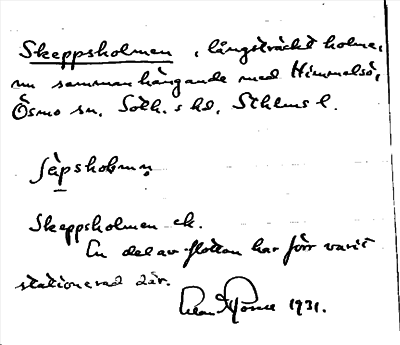 Skeppsholmen, långsträckt holme,
nu sammanhängande med Himmelsö,
Ösmo sn, Soth. s hd, Sthlms l.
Skeppsholmen ek.
En del av flottan har förr varit
stationerad där.
1931.